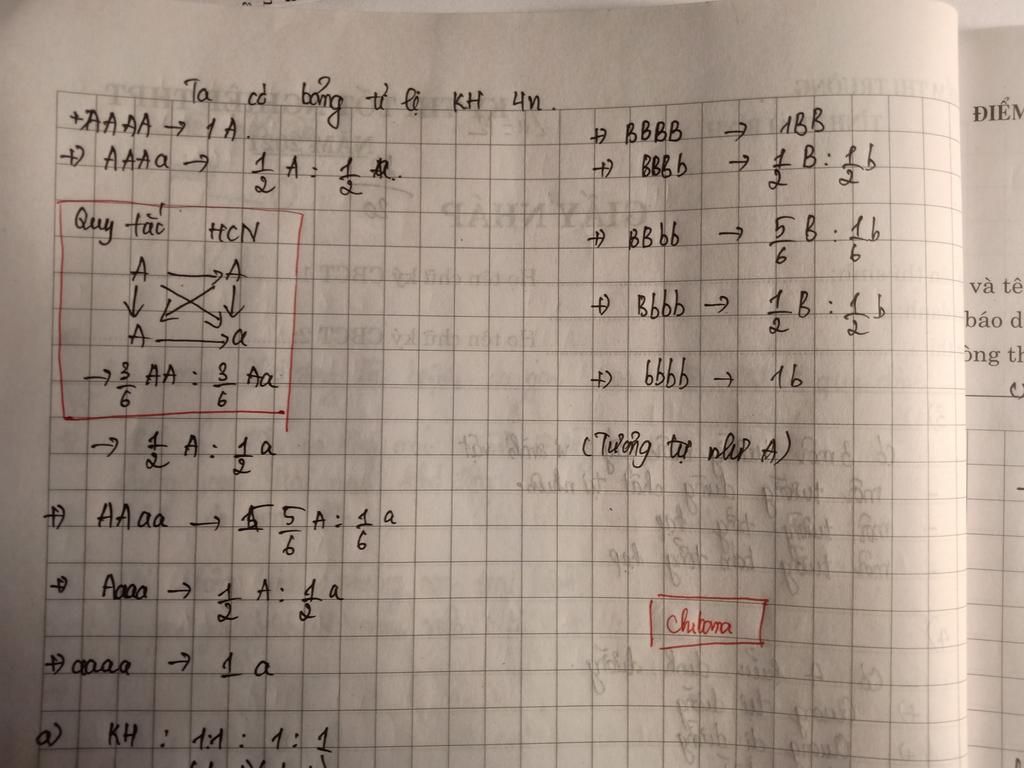 Ta có bảng tỉ lệ KH 4n.
+ AAAA → 1A.
+) AAAa → 1/2 A : 1/2 a.
Quy tắc HCN
A → A
A → a
→ 3/6 AA : 3/6 Aa
→ 1/2 A : 1/2 a
+) AAaa → 5/6 A : 1/6 a
+) Aaaa → 1/2 A : 1/2 a
+) aaaa → 1 a
a) KH : 1:1 : 1 : 1
+) BBBB → 1BB
+) BBBb → 1/2 B : 1/2 b
+) BBbb → 5/6 B : 1/6 b
+) Bbbb → 1/2 B : 1/2 b
+) bbbb → 1b
(Tương tự như A)
ĐIỂM
và tê
báo d
ông th
GIẤY NHÁP